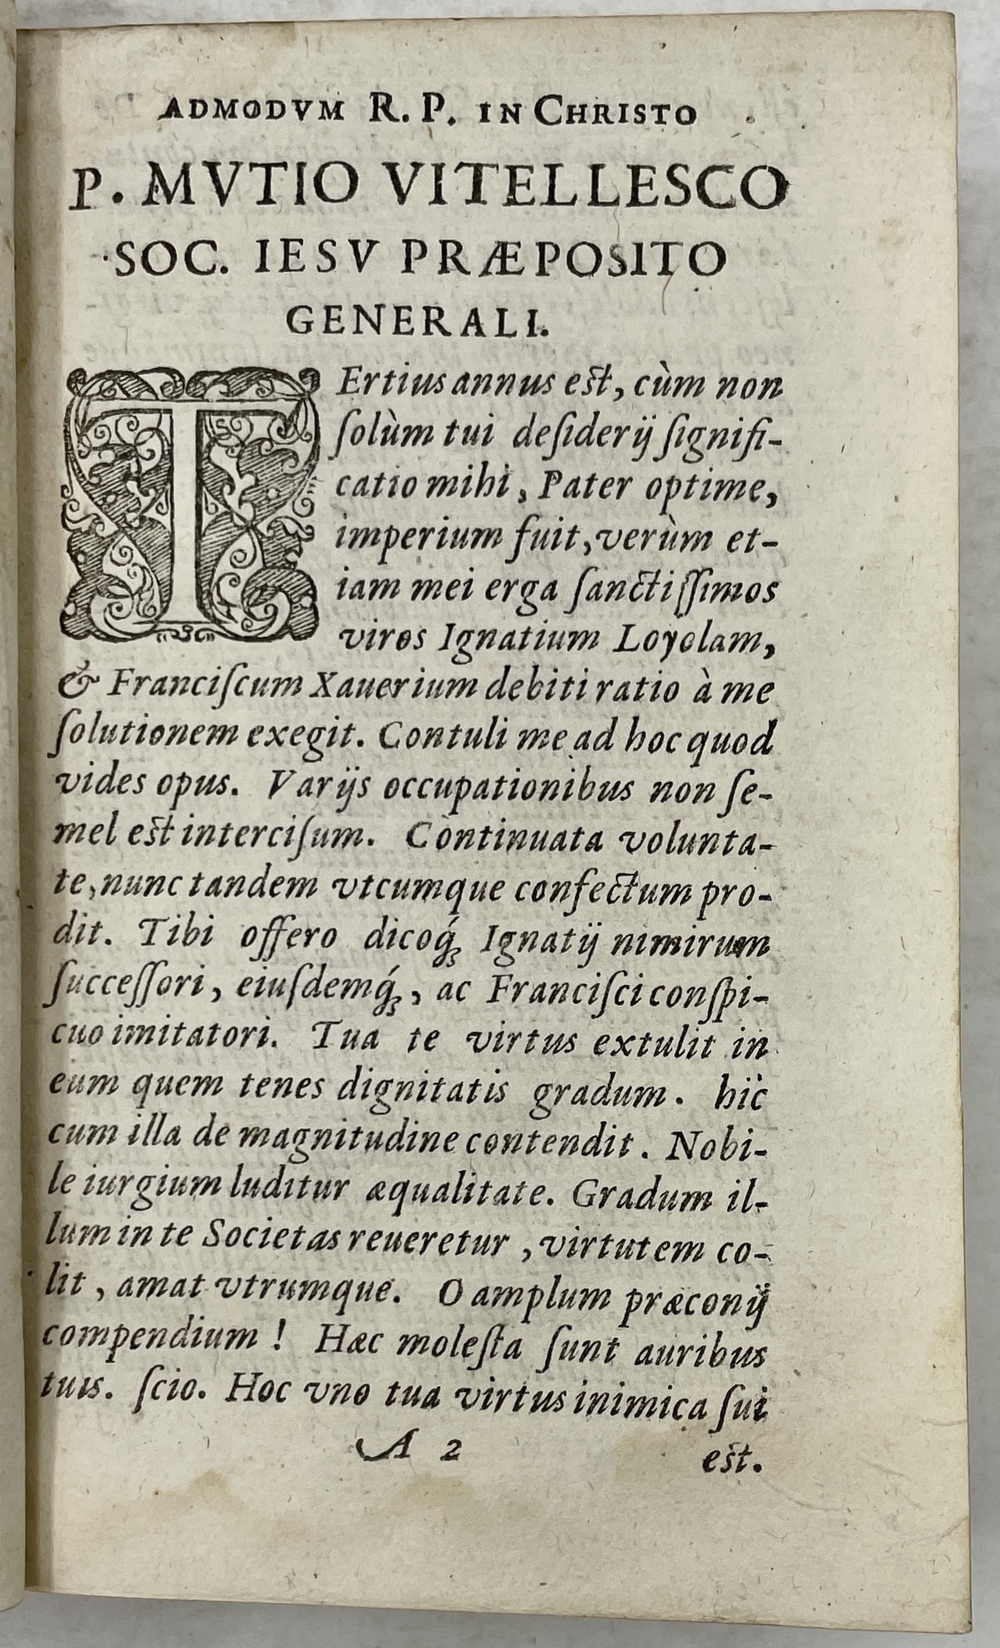 ADMODVM R. P. IN CHRISTO
P. MVTIO VITELLESCO
SOC. IESV PRÆPOSITO
GENERALI.
TErtius annus est, cùm non
ſolùm tui deſiderij ſignifi-
catio mihi, Pater optime,
imperium fuit, verùm et-
iam mei erga ſanctiſſimos
viros Ignatium Loyolam,
& Franciſcum Xauerium debiti ratio à me
ſolutionem exegit. Contuli me ad hoc quod
vides opus. Varijs occupationibus non ſe-
mel est interciſum. Continuata volunta-
te, nunc tandem vtcumque confectum pro-
dit. Tibi offero dicoq́; Ignatij nimirum
ſucceſſori, eiuſdemq́;, ac Franciſci conſpi-
cuo imitatori. Tua te virtus extulit in
eum quem tenes dignitatis gradum. hic
cum illa de magnitudine contendit. Nobi-
le iurgium luditur æqualitate. Gradum il-
lum in te Societas reueretur, virtutem co-
lit, amat vtrumque. O amplum præconij
compendium! Hæc moleſta ſunt auribus
tuis. ſcio. Hoc vno tua virtus inimica ſui
A 2 est.